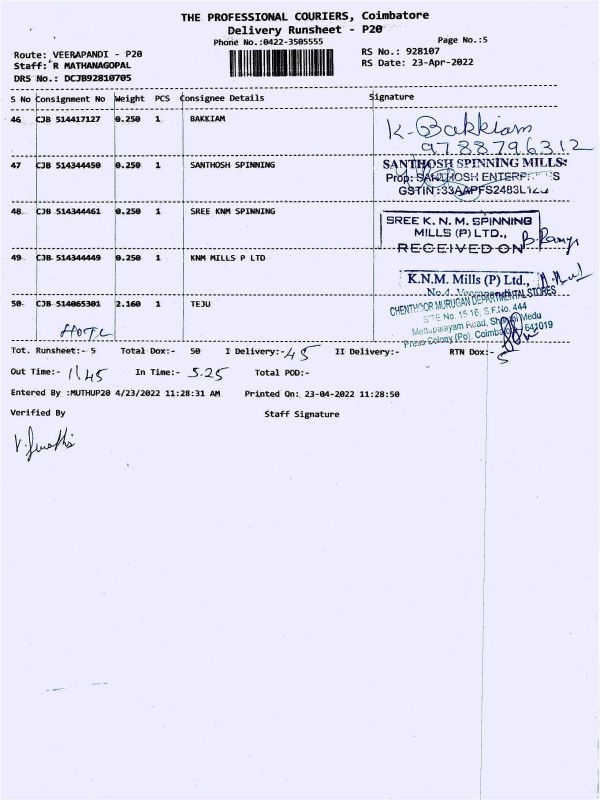 THE PROFESSIONAL COURIERS, Coimbatore
Delivery Runsheet - P20
Phone No.:0422-3505555
Page No.:5
Route: VEERAPANDI - P20
RS No.: 928107
Staff: R MATHANAGOPAL
RS Date: 23-Apr-2022
DRS No.: DCJB92810705
S No Consignment No Weight PCS Consignee Details Signature
46 CJB 514417127 0.250 1 BAKKIAM
K. Bakkiam
9788796312
47 CJB 514344450 0.250 1 SANTHOSH SPINNING
SANTHOSH SPINNING MILLS
Prop: SANTHOSH ENTERP
GSTIN:33AAPFS2483L1
48 CJB 514344461 0.250 1 SREE KNM SPINNING
SREE K. N. M. SPINNING
MILLS (P) LTD.,
RECEIVED ON
49 CJB 514344449 0.250 1 KNM MILLS P LTD
K.N.M. Mills (P) Ltd.,
50 CJB 514065301 2.160 1 TEJU
CHENTHOOR MURUGAN DEPARTMENTAL STORES
SITE No. 15 16, S.F.No. 444
Mettupalayam Road,
Press Colony (Po). Coimbatore 641019
HOTL
Tot. Runsheet:- 5 Total Dox:- 50 I Delivery:- 45 II Delivery:- RTN Dox:- 5
Out Time:- 11 45 In Time:- 5.25 Total POD:-
Entered By :MUTHUP20 4/23/2022 11:28:31 AM Printed On: 23-04-2022 11:28:50
Verified By Staff Signature